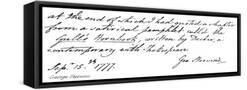 at the end of which I had quoted a chapter
from a satirical pamphlet call'd the
Gull's Hornbook, written by Decker, a
contemporary with Shakespeare.
Geo Steevens
Sept. 15. 1777.
George Steevens